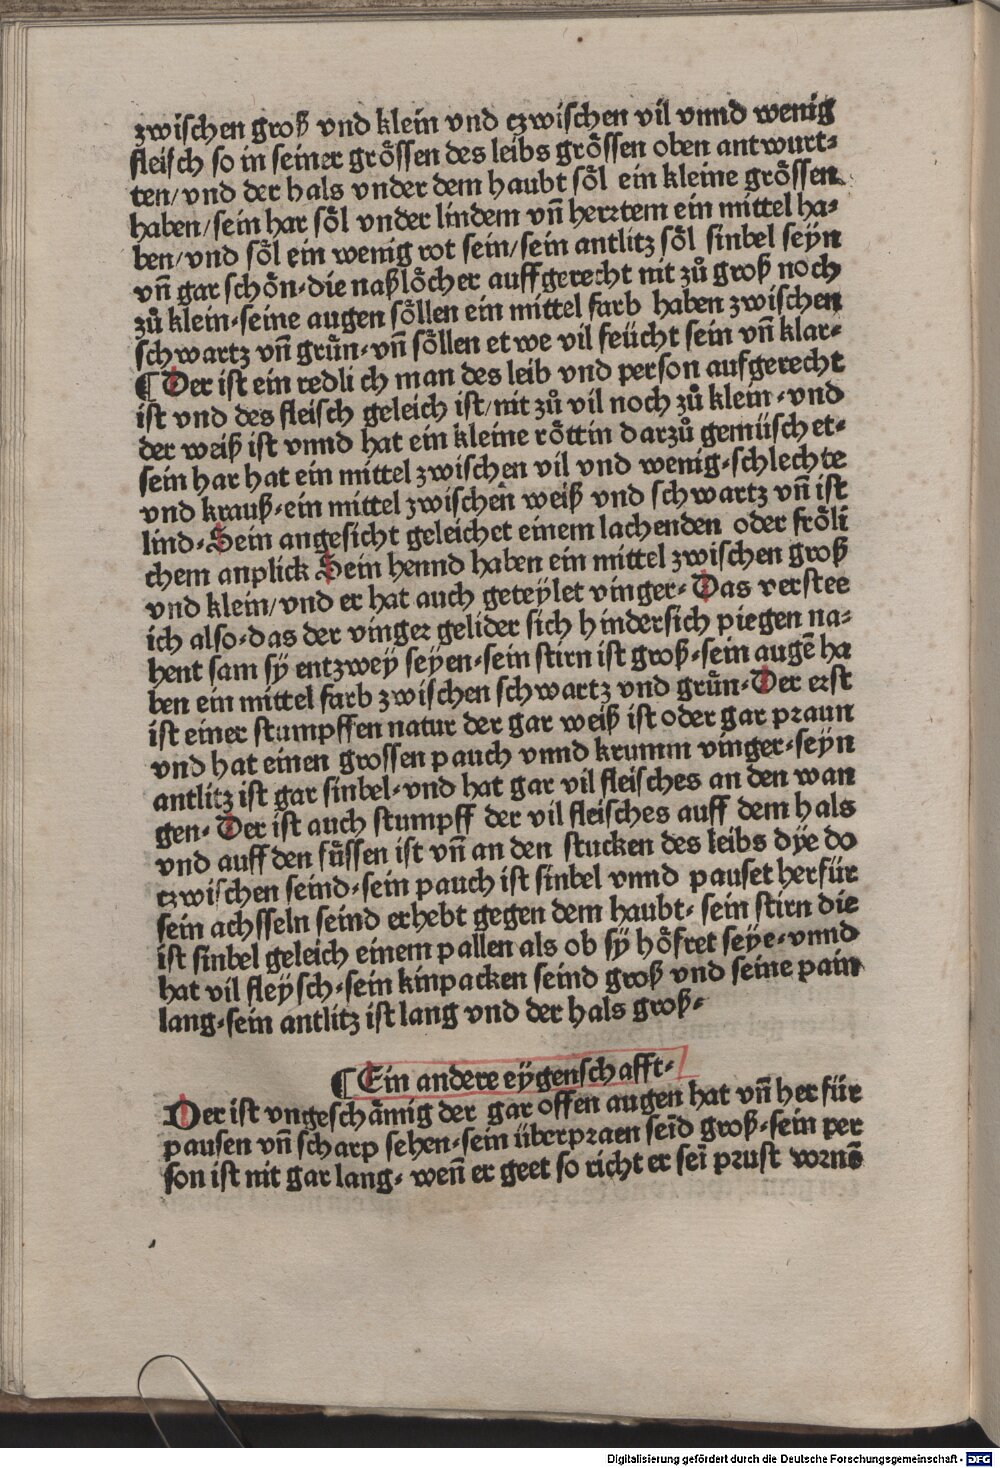 zwischen groß vnd klein vnd czwischen vil vnnd wenig
fleisch so in seiner grössen des leibs grössen oben antwurt⸗
ten/ vnd der hals vnder dem haubt söl ein kleine grössen
haben/ sein har söl vnder lindem vñ hertem ein mittel ha⸗
ben/ vnd söl ein wenig rot sein/ sein antlitz söl sinbel seyn
vñ gar schön⸗ die naßlöcher auffgerecht nit zů groß noch
zů klein⸗ seine augen söllen ein mittel farb haben zwischen
schwartz vñ grün⸗ vñ söllen etwe vil feücht sein vñ klar⸗
¶ Der ist ein redlich man des leib vnd person aufgerecht
ist vnd des fleisch geleich ist/ nit zů vil noch zů klein⸗ vnd
der weiß ist vnnd hat ein kleine röttin darzů gemüschet⸗
sein har hat ein mittel zwischen vil vnd wenig⸗ schlechte
vnd krauß⸗ ein mittel zwischen weiß vnd schwartz vñ ist
lind⸗ Sein angesicht geleichet einem lachenden oder fröli
chem anplick Sein hennd haben ein mittel zwischen groß
vnd klein/ vnd er hat auch geteylet vinger⸗ Das verstee
ich also⸗ das der vinger gelider sich hindersich piegen na⸗
hent sam sy entzwey seyen⸗ sein stirn ist groß⸗ sein augē ha
ben ein mittel farb zwischen schwartz vnd grün⸗ Der erst
ist einer stumpffen natur der gar weiß ist oder gar praun
vnd hat einen grossen pauch vnnd krumm vinger⸗ seyn
antlitz ist gar sinbel⸗ vnd hat gar vil fleisches an den wan
gen⸗ Der ist auch stumpff der vil fleisches auff dem hals
vnd auff den füssen ist vñ an den stucken des leibs dye do
czwischen seind⸗ sein pauch ist sinbel vnnd pauset herfür
sein achsseln seind erhebt gegen dem haubt⸗ sein stirn die
ist sinbel geleich einem pallen als ob sy höfret seye⸗ vnnd
hat vil fleysch⸗ sein kinpacken seind groß vnd seine pain
lang⸗ sein antlitz ist lang vnd der hals groß⸗
¶ Ein andere eygenschafft⸗
Der ist vngeschämig der gar offen augen hat vñ herfür
pausen vñ scharp sehen⸗ sein überpraen seīd groß⸗ sein per
son ist nit gar lang⸗ weñ er geet so richt er seī prust vornē
Digitalisierung gefördert durch die Deutsche Forschungsgemeinschaft - DFG